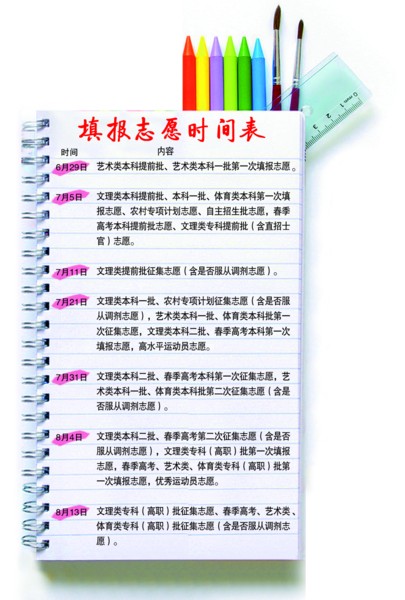 填报志愿时间表
时间 内容
6月29日 艺术类本科提前批、艺术类本科一批第一次填报志愿。
7月5日 文理类本科提前批、本科一批、体育类本科第一次填
报志愿、农村专项计划志愿、自主招生批志愿，春季
高考本科提前批志愿、文理类专科提前批（含直招士
官）志愿。
7月11日 文理类提前批征集志愿（含是否服从调剂志愿）。
7月21日 文理类本科一批、农村专项计划征集志愿（含是否服
从调剂志愿），艺术类本科一批、体育类本科批第一
次征集志愿，文理类本科二批、春季高考本科第一次
填报志愿，高水平运动员志愿。
7月31日 文理类本科二批、春季高考本科第一次征集志愿，艺
术类本科一批、体育类本科批第二次征集志愿（含是
否服从调剂志愿）。
8月4日 文理类本科二批、春季高考第二次征集志愿（含是否
服从调剂志愿），文理类专科（高职）批第一次填报
志愿，春季高考、艺术类、体育类专科（高职）批第
一次填报志愿，优秀运动员志愿。
8月13日 文理类专科（高职）批征集志愿、春季高考、艺术类、
体育类专科（高职）批征集志愿（含是否服从调剂志
愿）。